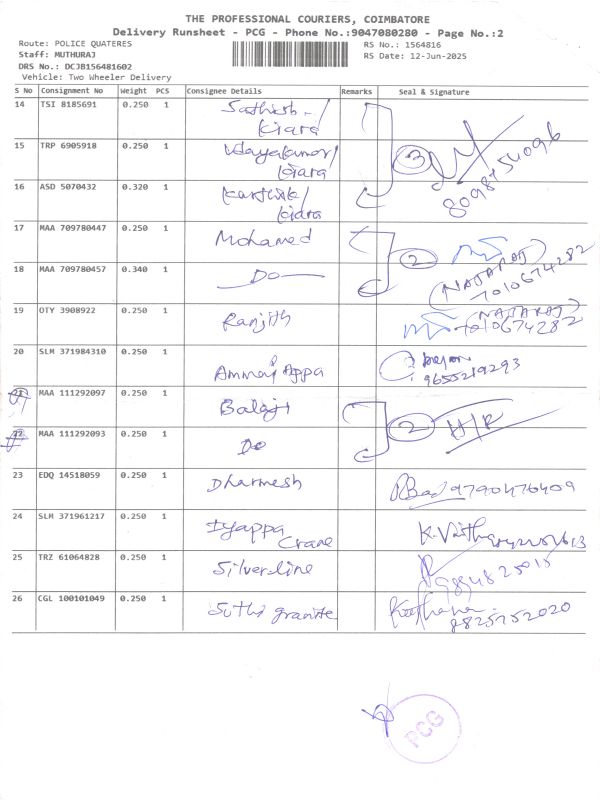 THE PROFESSIONAL COURIERS, COIMBATORE
Delivery Runsheet - PCG - Phone No.:9047080280 - Page No.:2
Route: POLICE QUATERES
RS No.: 1564816
Staff: MUTHURAJ
RS Date: 12-Jun-2025
DRS No.: DCJB156481602
Vehicle: Two Wheeler Delivery
S No Consignment No Weight PCS Consignee Details Remarks Seal & Signature
14 TSI 8185691 0.250 1 Sathish / Kiara
15 TRP 6905918 0.250 1 Udayakumar / Kiara 3 8098754096
16 ASD 5070432 0.320 1 Karthik / Kiara
17 MAA 709780447 0.250 1 Mohamed 2
18 MAA 709780457 0.340 1 Do (NATARAJ) 7010674282
19 OTY 3908922 0.250 1 Ranjith (NATARAJ) 7010674282
20 SLM 371984310 0.250 1 Ammai Appa 9655219293
21 MAA 111292097 0.250 1 Balaji
22 MAA 111292093 0.250 1 Do 2 H/R
23 EDQ 14518059 0.250 1 Dharmesh 9790476409
24 SLM 371961217 0.250 1 Iyappa Crane
25 TRZ 61064828 0.250 1 Silverline
26 CGL 100101049 0.250 1 Suthi granite 8825752020
PCG